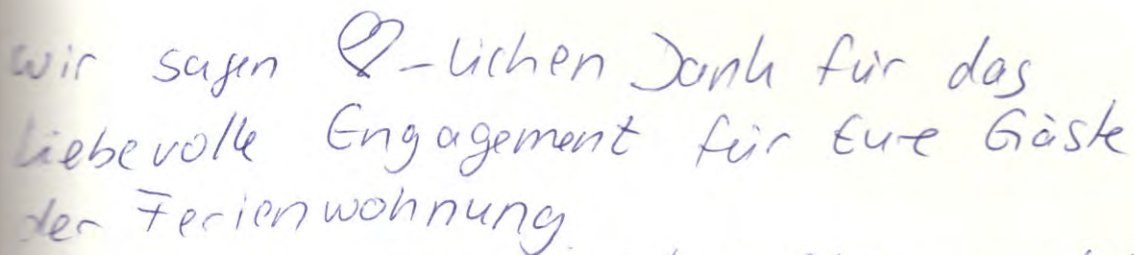 wir sagen ♡-lichen Dank für das
liebevolle Engagement für Eure Gäste
der Ferienwohnung